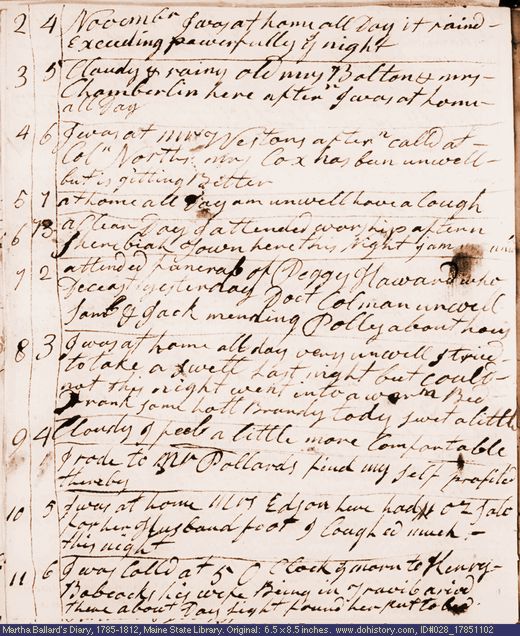 2 4 Novembr I was at home all Day it raind
Exceeding powerfully ys night
3 5 Cloudy & rainy old mrs Bolton & mrs
Chamberlin here aftern I was at home
all Day
4 6 I was at mrs Westons aftern calld at
Coln Norths mrs Cox has ben unwell
but is gitting Better
5 7 at home all Day am unwell have a Cough
6 B a Clear Day I attended worship aftern
Sherebiah Town here this Night I am
7 2 attended funeral of Peggy Haward who
Deceast yesterday Doct Colman unwell
Saml & Jack mending Polly about hous
8 3 I was at home all day very unwell strivd
to take a swett Last night but Coult
not this night went into a warm Bed
Drank some hott Brandy tody swet a little
9 4 Cloudy I feel a little more Comfortable
I rode to Mr Pollards find my self profited
thereby
10 5 I was at home Mrs Edson here had oz Salv
for her Husband foot I Coughed much
this night
11 6 I was Calld at 5 O Clock ys morn to Henry
Babcocks his wife Being in Travil arivd
there about Day light found her put to bed
Martha Ballard's Diary, 1785-1812, Maine State Library. Original: 6.5 x 8.5 inches. www.DoHistory.org, ID#028_17851102